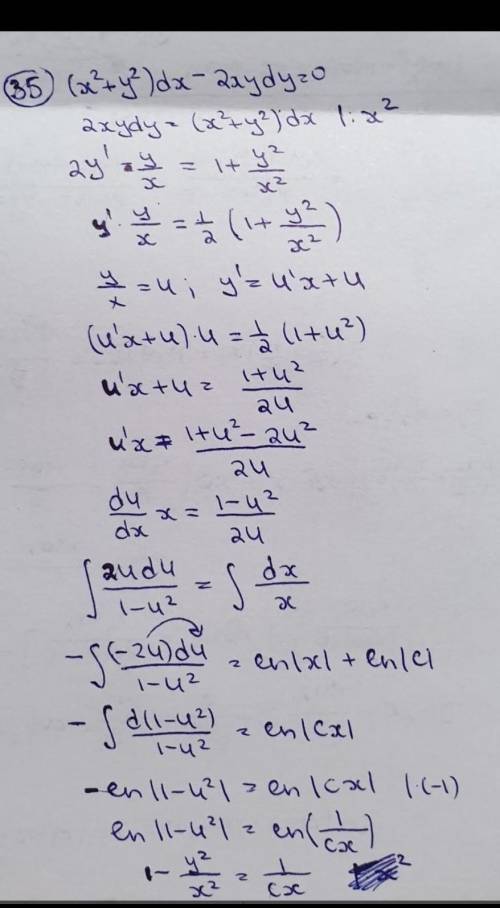 35) (x²+y²)dx - 2xydy=0
2xydy = (x²+y²)dx |: x²
2y' · y/x = 1 + y²/x²
y' · y/x = 1/2 (1 + y²/x²)
y/x = u; y' = u'x + u
(u'x+u)·u = 1/2 (1+u²)
u'x + u = (1+u²)/2u
u'x = (1+u² - 2u²)/2u
du/dx x = (1-u²)/2u
∫ 2udu/(1-u²) = ∫ dx/x
-∫ (-2u)du/(1-u²) = ln|x| + ln|c|
-∫ d(1-u²)/(1-u²) = ln|cx|
-ln|1-u²| = ln|cx| |·(-1)
ln|1-u²| = ln(1/cx)
1 - y²/x² = 1/cx